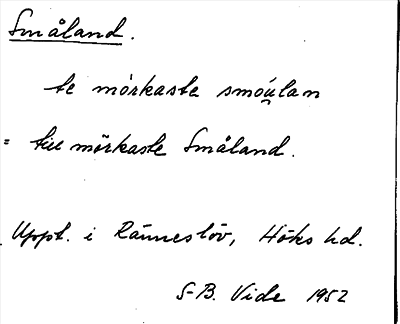 Småland.
te mörkaste smóu̯lan
= till mörkaste Småland.
Uppt. i Ränneslöv, Höks hd.
S-B. Vide 1952